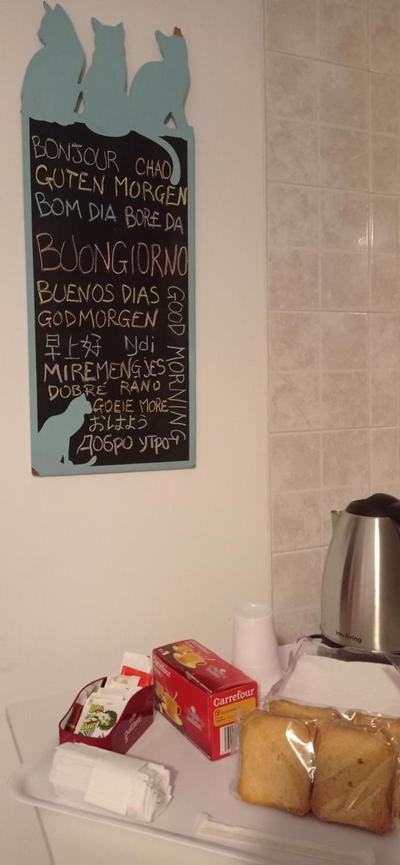 BONJOUR CHAO
GUTEN MORGEN
BOM DIA BORE DA
BUONGIORNO
BUENOS DIAS
GODMORGEN
GOOD MORNING
早上好 Ndi
MIREMENGJES
DOBRE RANO
GOEIE MORE
おはよう
Добро утро
Carrefour